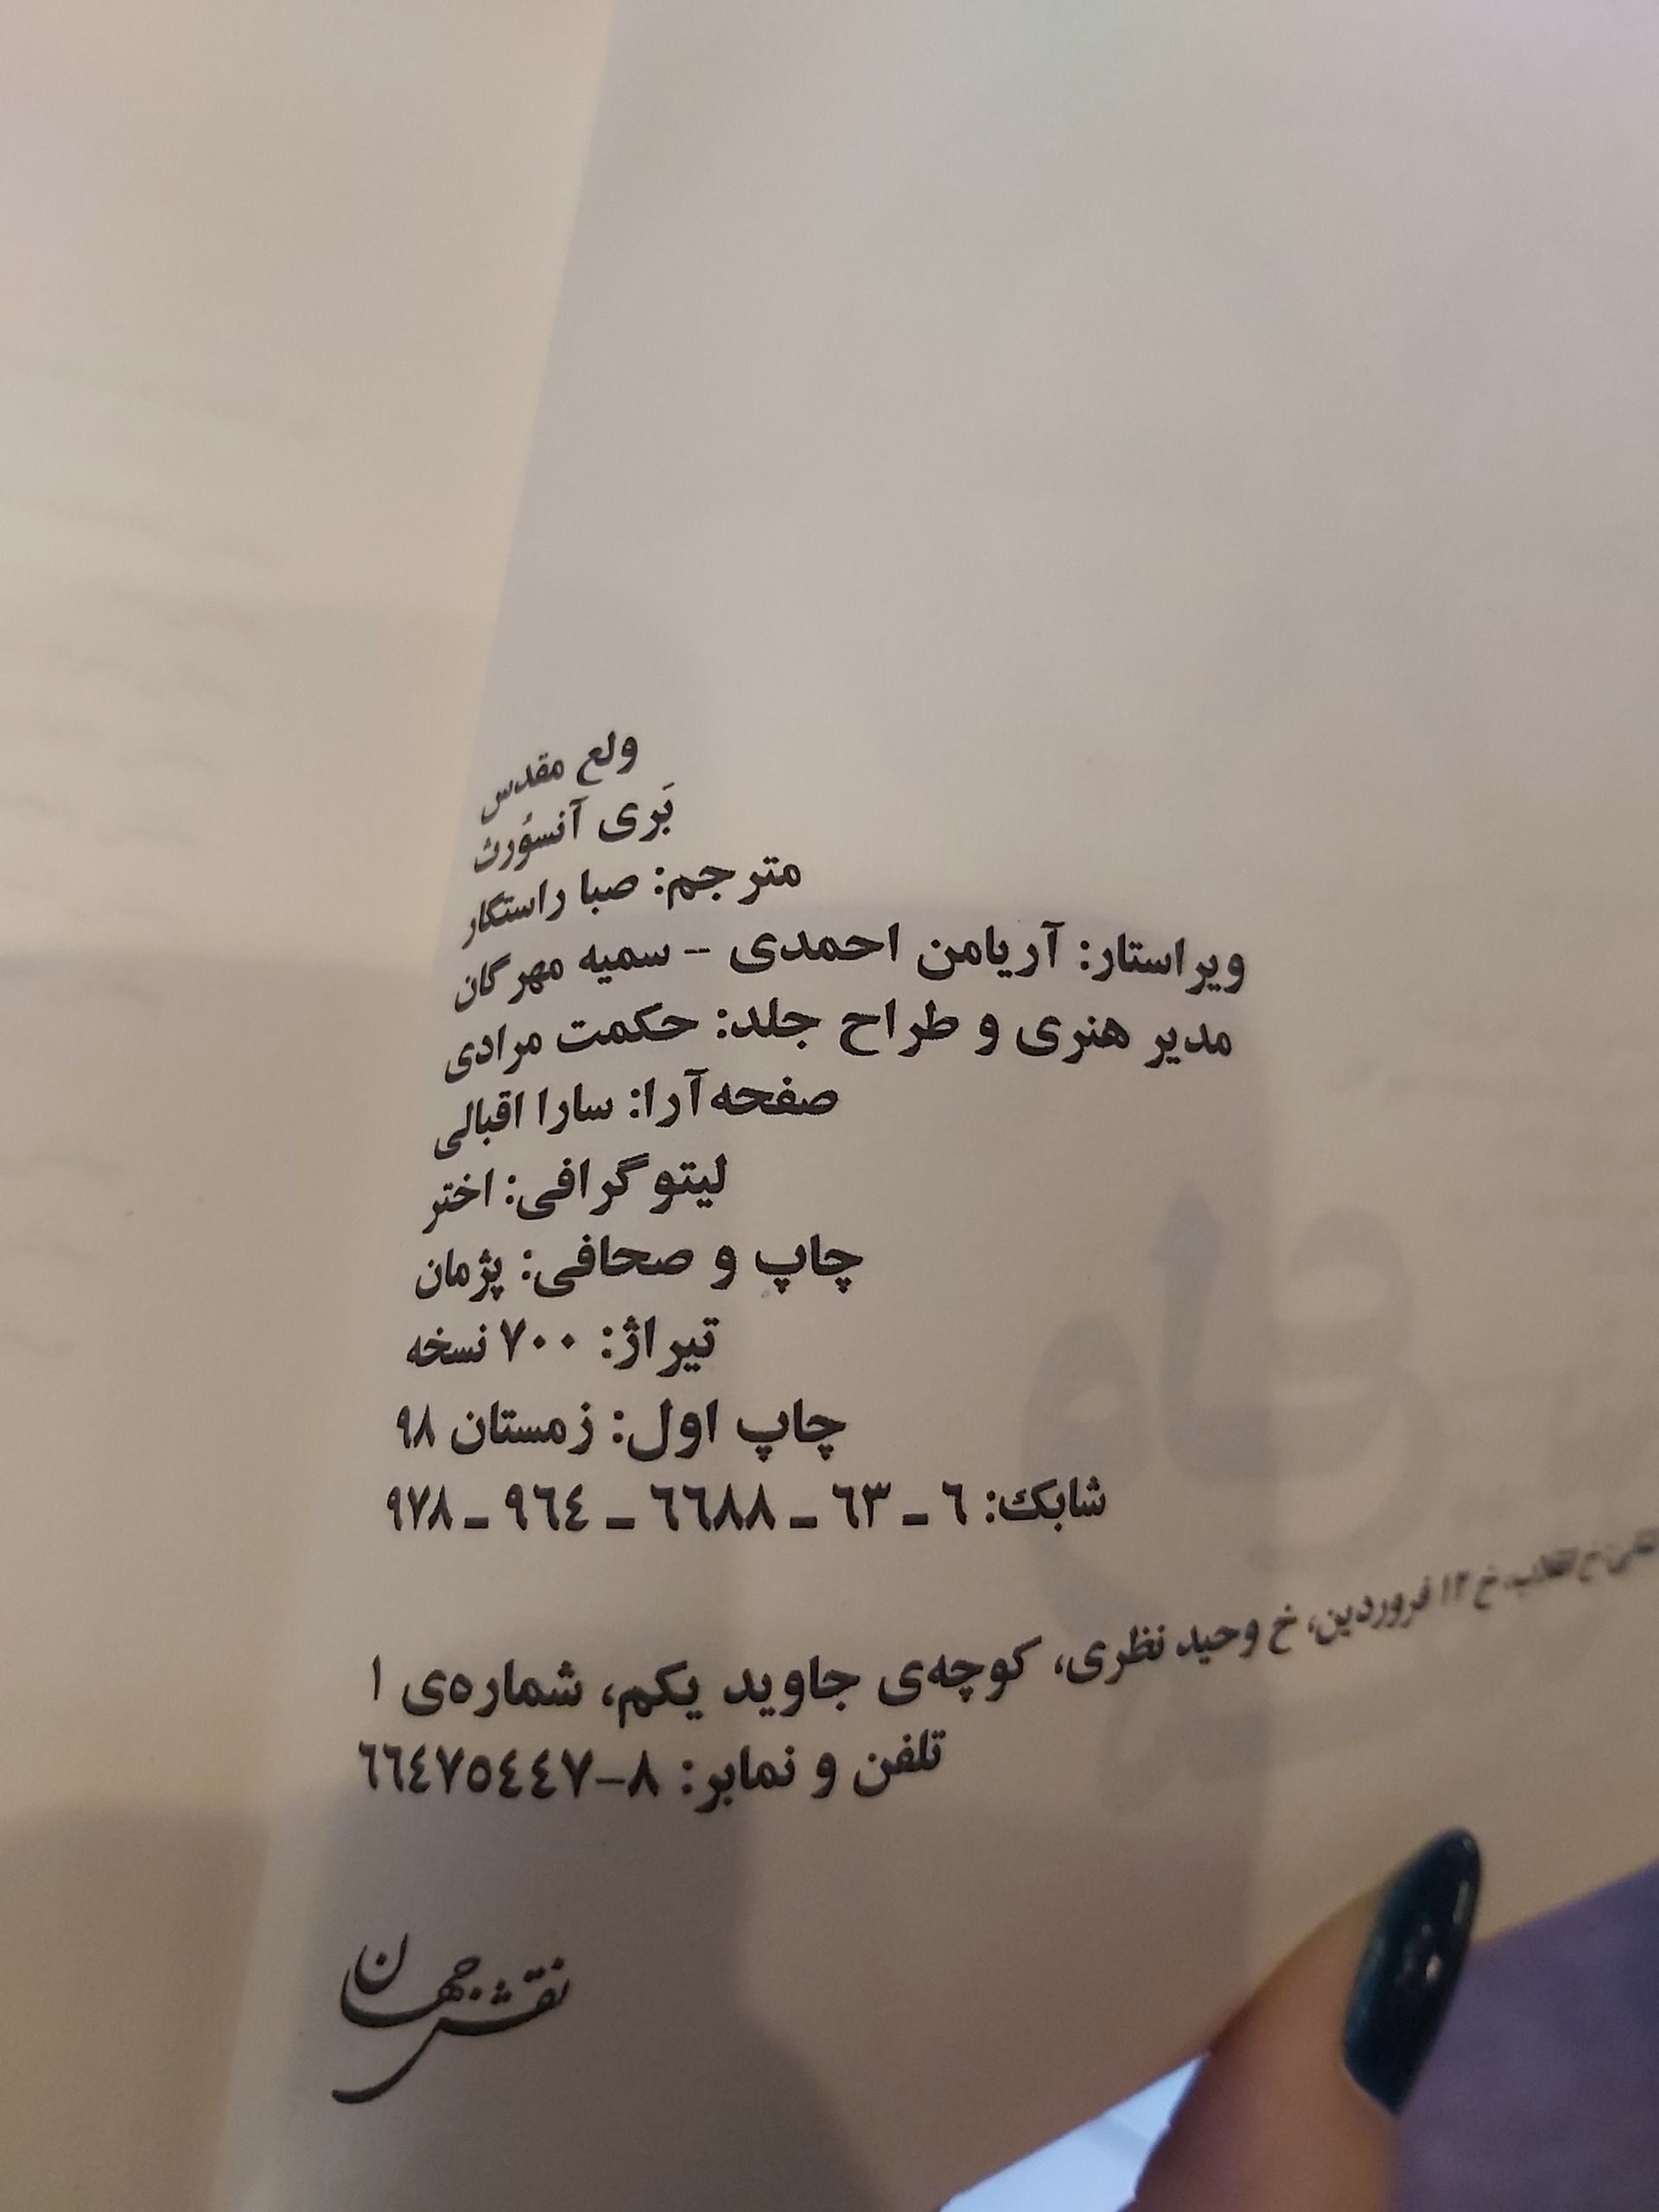 ولع مقدس
بَری آنسوُرث
مترجم: صبا راستکار
ویراستار: آریامن احمدی - سمیه مهرگان
مدیر هنری و طراح جلد: حکمت مرادی
صفحه‌آرا: سارا اقبالی
لیتوگرافی: اختر
چاپ و صحافی: پژمان
تیراژ: ۷۰۰ نسخه
چاپ اول: زمستان ۹۸
شابک: ٦ ـ ٦٣ ـ ٦٦٨٨ ـ ٩٦٤ ـ ٩٧٨
خ انقلاب، خ ۱۲ فروردین، خ وحید نظری، کوچه‌ی جاوید یکم، شماره‌ی ۱
تلفن و نمابر: ٨-٦٦٤٧٥٤٤٧
نقش جهان